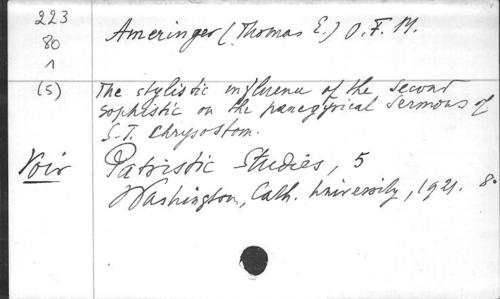 223
80
1
Ameringer (Thomas E.) O.F.M.
(5) The stylistic influence of the Second
Sophistic on the panegyrical Sermons of
S.T. Chrysostom.
Voir Patristic Studies, 5
Washington, Cath. University, 1921. 8°